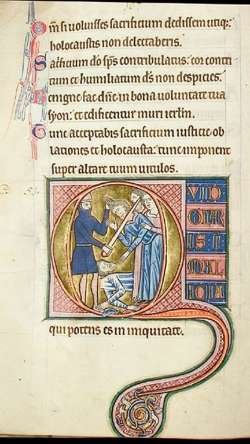 Qm̄ si voluisses sacrificium dedissem utiq;
holocaustis non delectaberis.
Sacrificium dō sp̄s contribulatus: cor contri
tum et humiliatum dē non despicies.
Benigne fac dn̄e in bona voluntate tua
syon: et edificentur muri ierlm̄.
Tunc acceptabis sacrificium iusticie ob
lationes et holocausta: tunc imponent
super altare tuum vitulos.
QUID
GLORI
qui potens es in iniquitate.